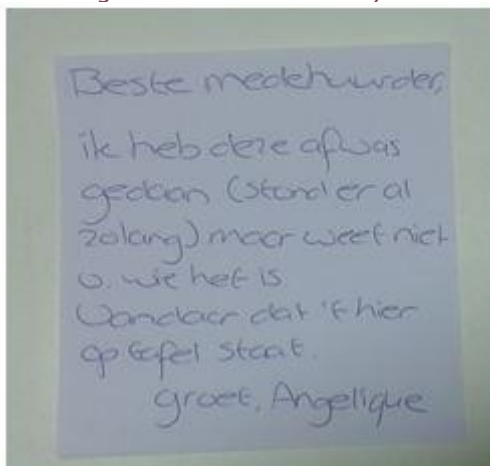 Beste medehuurder,
ik heb deze afwas
gedaan (stond er al
zolang) maar weet niet
v. wie het is
Vandaar dat 't hier
op tafel staat.
groet, Angelique